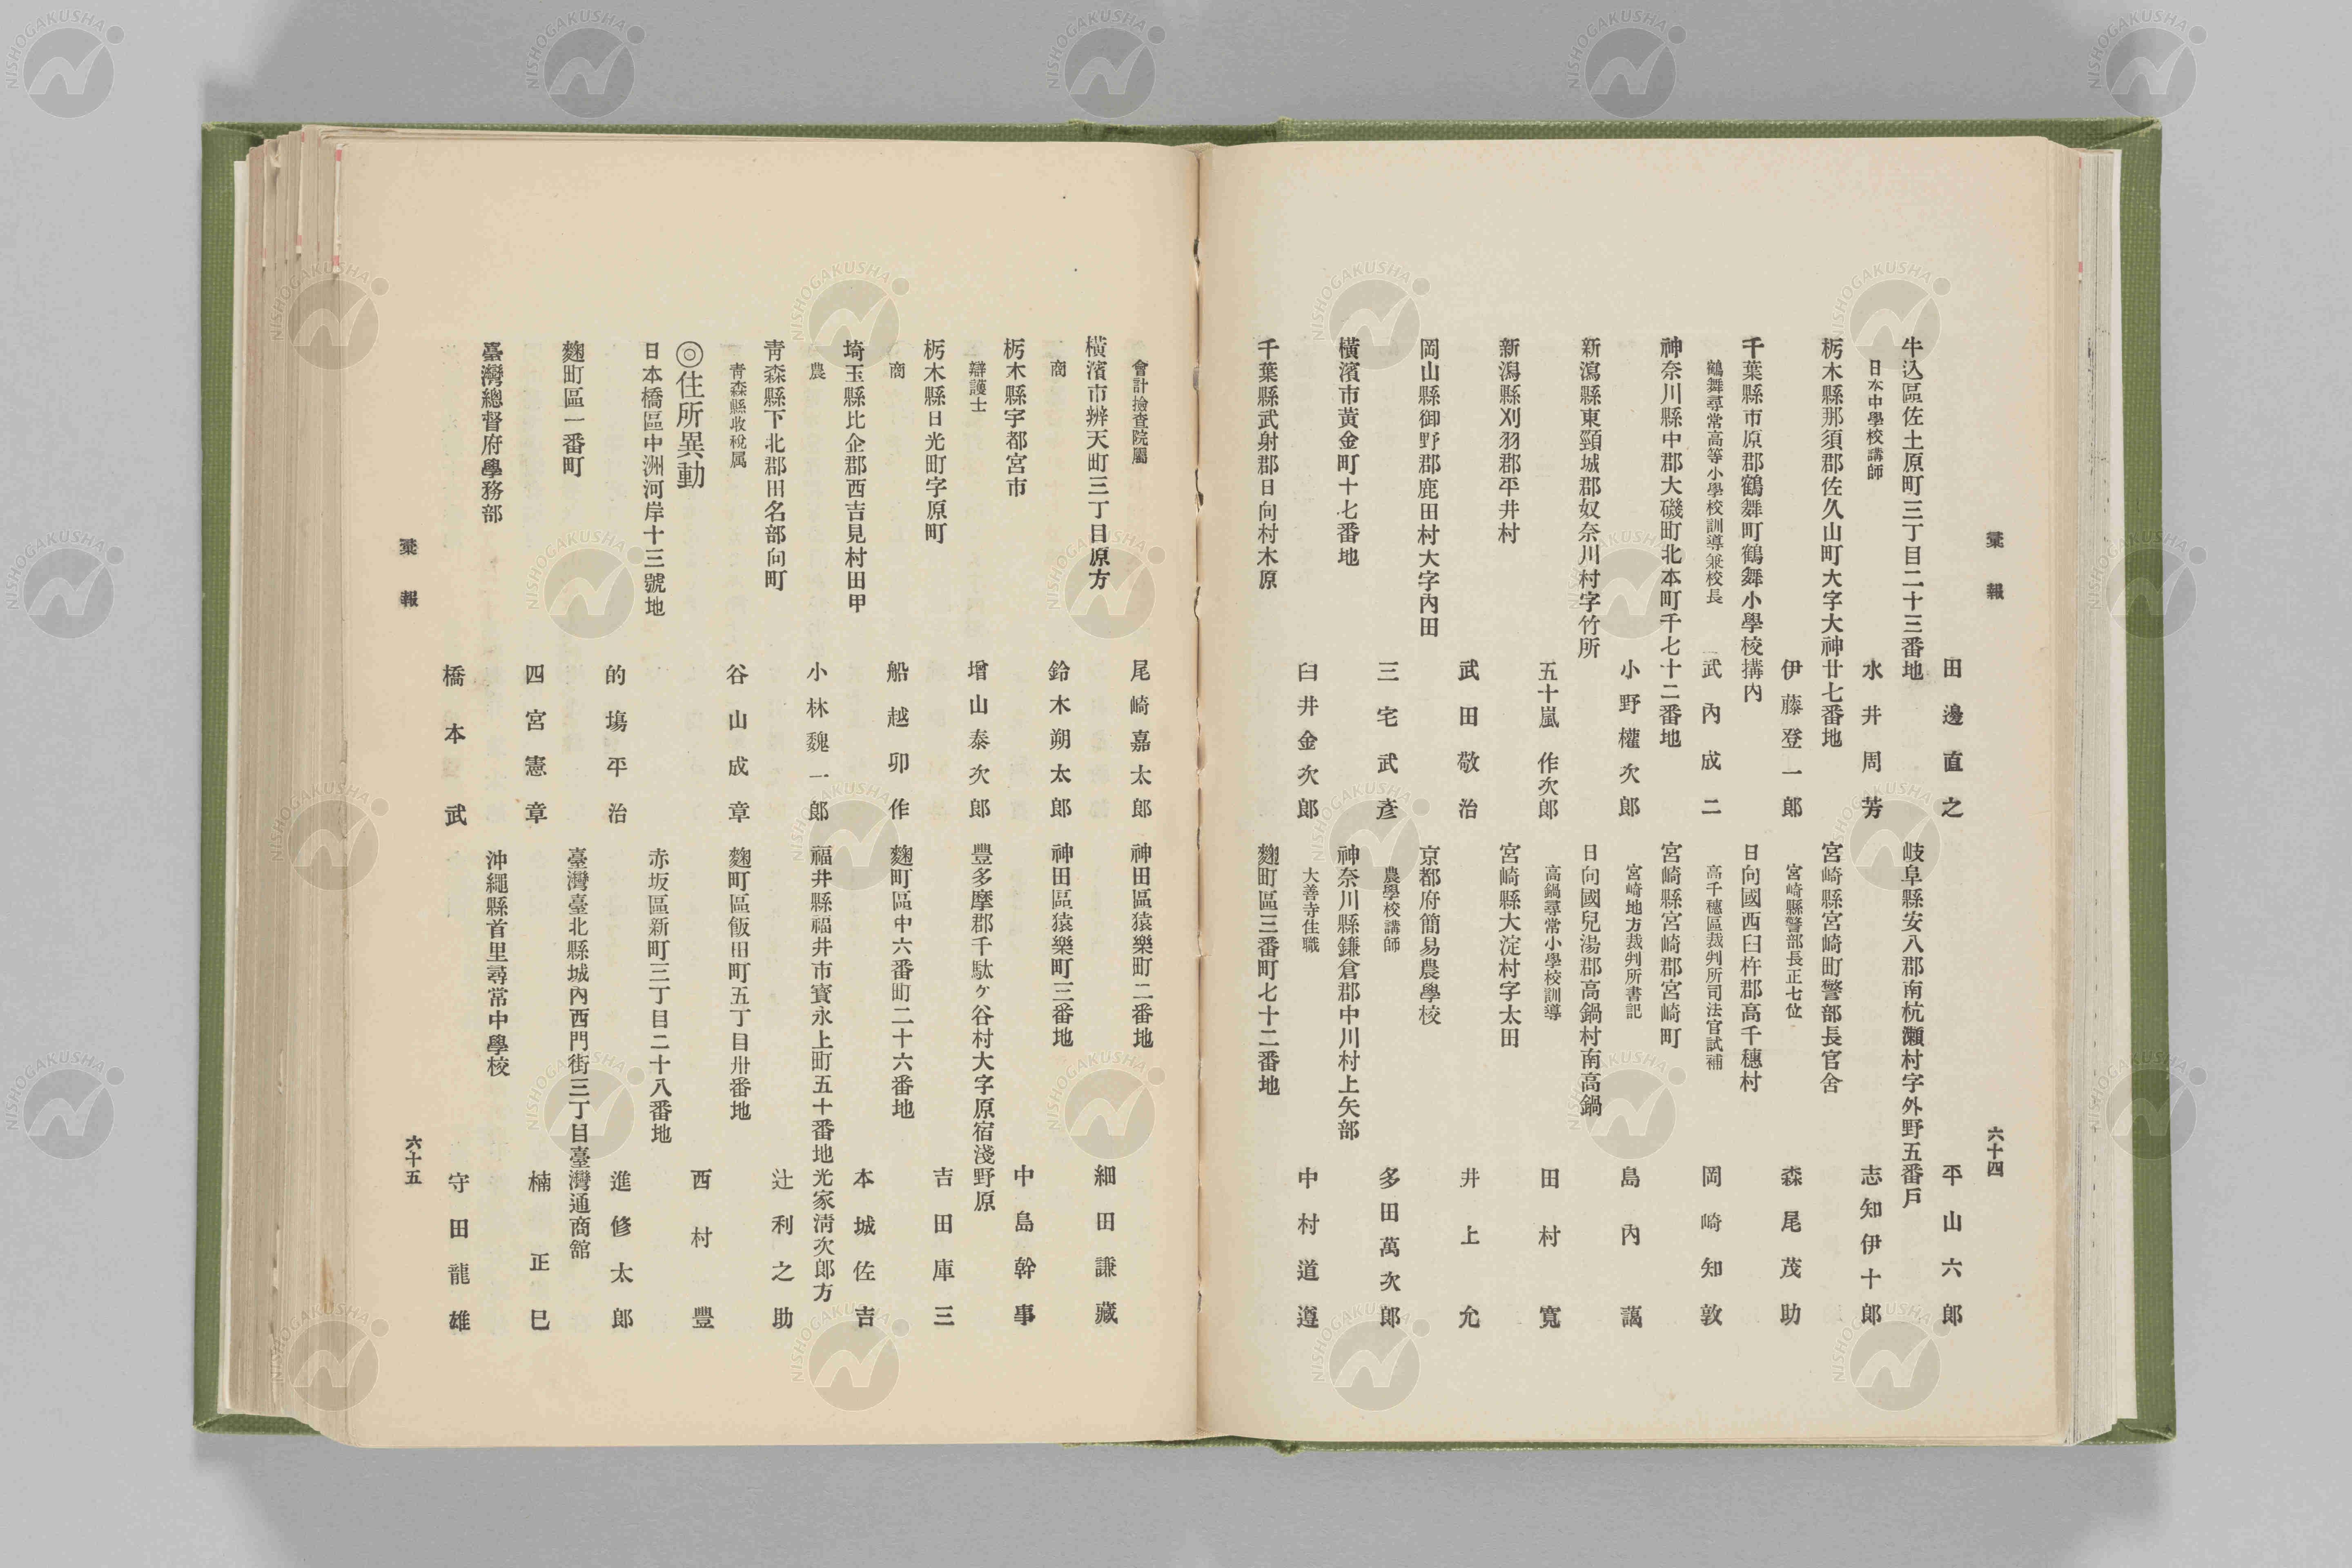 彙報
六十四
田邊直之
牛込區佐土原町三丁目二十三番地
日本中學校講師 水井周芳
栃木縣那須郡佐久山町大字大神廿七番地
伊藤登一郎
千葉縣市原郡鶴舞町鶴舞小學校搆内
鶴舞尋常高等小學校訓導兼校長 武内成二
神奈川縣中郡大磯町北本町千七十二番地
小野權次郎
新瀉縣東頸城郡奴奈川村字竹所
五十嵐作次郎
新潟縣刈羽郡平井村
武田敬治
岡山縣御野郡鹿田村大字内田
三宅武彦
横濱市黄金町十七番地
臼井金次郎
千葉縣武射郡日向村木原
平山六郎
岐阜縣安八郡南杭瀬村字外野五番戸
志知伊十郎
宮崎縣宮崎町警部長官舍
宮崎縣警部長正七位 森尾茂助
日向國西臼杵郡高千穗村
高千穗區裁判所司法官試補 岡崎知敦
宮崎縣宮崎郡宮崎町
宮崎地方裁判所書記 島内藹
日向國兒湯郡高鍋村南高鍋
高鍋尋常小學校訓導 田村寛
宮崎縣大淀村字太田
井上允
京都府簡易農學校
農學校講師 多田萬次郎
神奈川縣鎌倉郡中川村上矢部
大善寺住職 中村道遵
麴町區三番町七十二番地
會計撿査院屬 尾崎嘉太郎
横濱市辨天町三丁目原方
商 鈴木朔太郎
栃木縣宇都宮市
辯護士 增山泰次郎
栃木縣日光町字原町
商 船越卯作
埼玉縣比企郡西吉見村田甲
農 小林魏一郎
青森縣下北郡田名部向町
青森縣收稅属 谷山成章
◎住所異動
日本橋區中洲河岸十三號地
的塲平治
麴町區一番町
四宮憲章
臺灣總督府學務部
橋本武
神田區猿樂町二番地
細田謙藏
神田區猿樂町三番地
中島幹事
豐多摩郡千駄ケ谷村大字原宿淺野原
吉田庫三
麴町區中六番町二十六番地
本城佐吉
福井縣福井市寳永上町五十番地光家淸次郎方
辻利之助
麴町區飯田町五丁目卅番地
西村豐
赤坂區新町三丁目二十八番地
進修太郎
臺灣臺北縣城内西門街三丁目臺灣通商舘
楠正巳
沖繩縣首里尋常中學校
守田龍雄
彙報
六十五
NISHOGAKUSHA